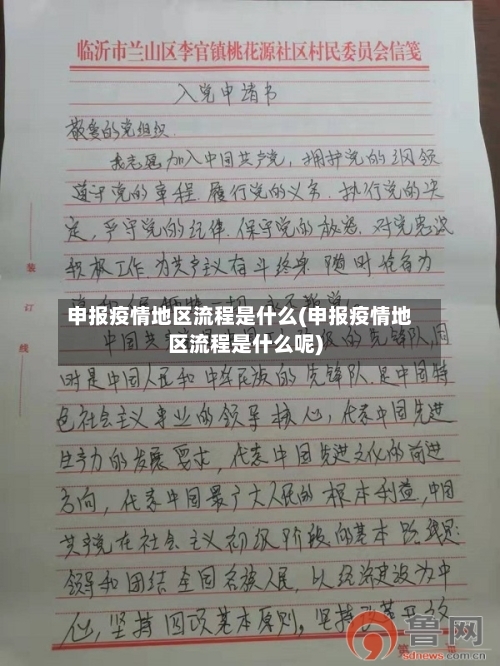 临沂市兰山区李官镇桃花源社区村民委员会信笺
入党申请书
敬爱的党组织
我志愿加入中国共产党，拥护党的纲领
遵守党的章程.履行党的义务.执行党的决
定，严守党的纪律.保守党的秘密.对党忠诚
积极工作.为共产主义奋斗终身.随时准备为
申报疫情地区流程是什么(申报疫情地
区流程是什么呢)
的先锋队,同
时是中国人民和中华民族的先锋队.是中国特
色社会主义事业的领导核心，代表中国先进
生产力的发展要求，代表中国先进文化的前进
方向，代表中国最广大人民的根本利益,中国
共产党在社会主义初级阶段的基本路线是:
领导和团结全国各族人民，以经济建设为中
心，坚持四项基本原则。坚持改革开放
装
订
线
鲁网
sdnews.com.cn